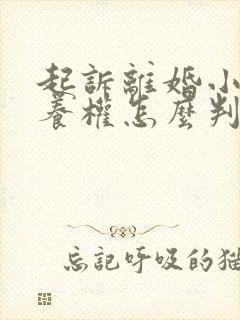 起訴離婚小
養權怎麼判
忘記呼吸的猫